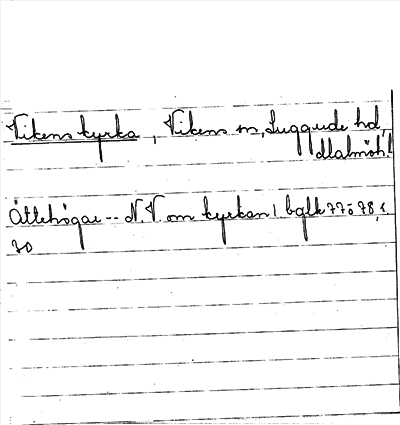 Vikens kyrka, Vikens sn, Luggude hd,
Malmöh. l
Ättehögar -- N.V. om kyrkan! bglk 77ö 78, s.
70